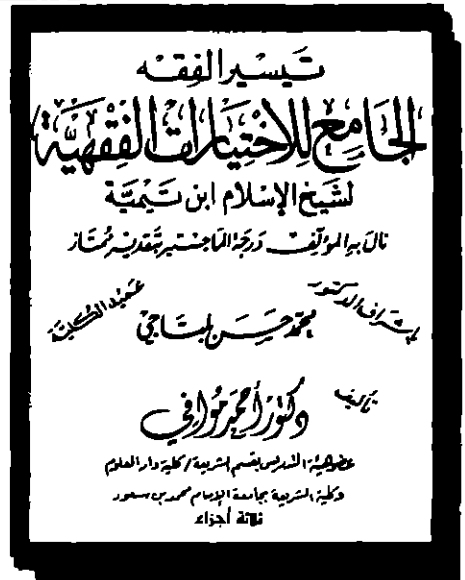 تيسير الفقه
الجامع للاختيارات الفقهية
لشيخ الإسلام ابن تيمية
نال به المؤلف درجة الماجستير بتقدير ممتاز
بإشراف الدكتور
محمد
عميد الكلية
تأليف
دكتور أحمد موافي
عضو هيئة التدريس بقسم الشريعة / كلية دار العلوم
وكلية الشريعة بجامعة الإمام محمد بن سعود
ثلاثة أجزاء